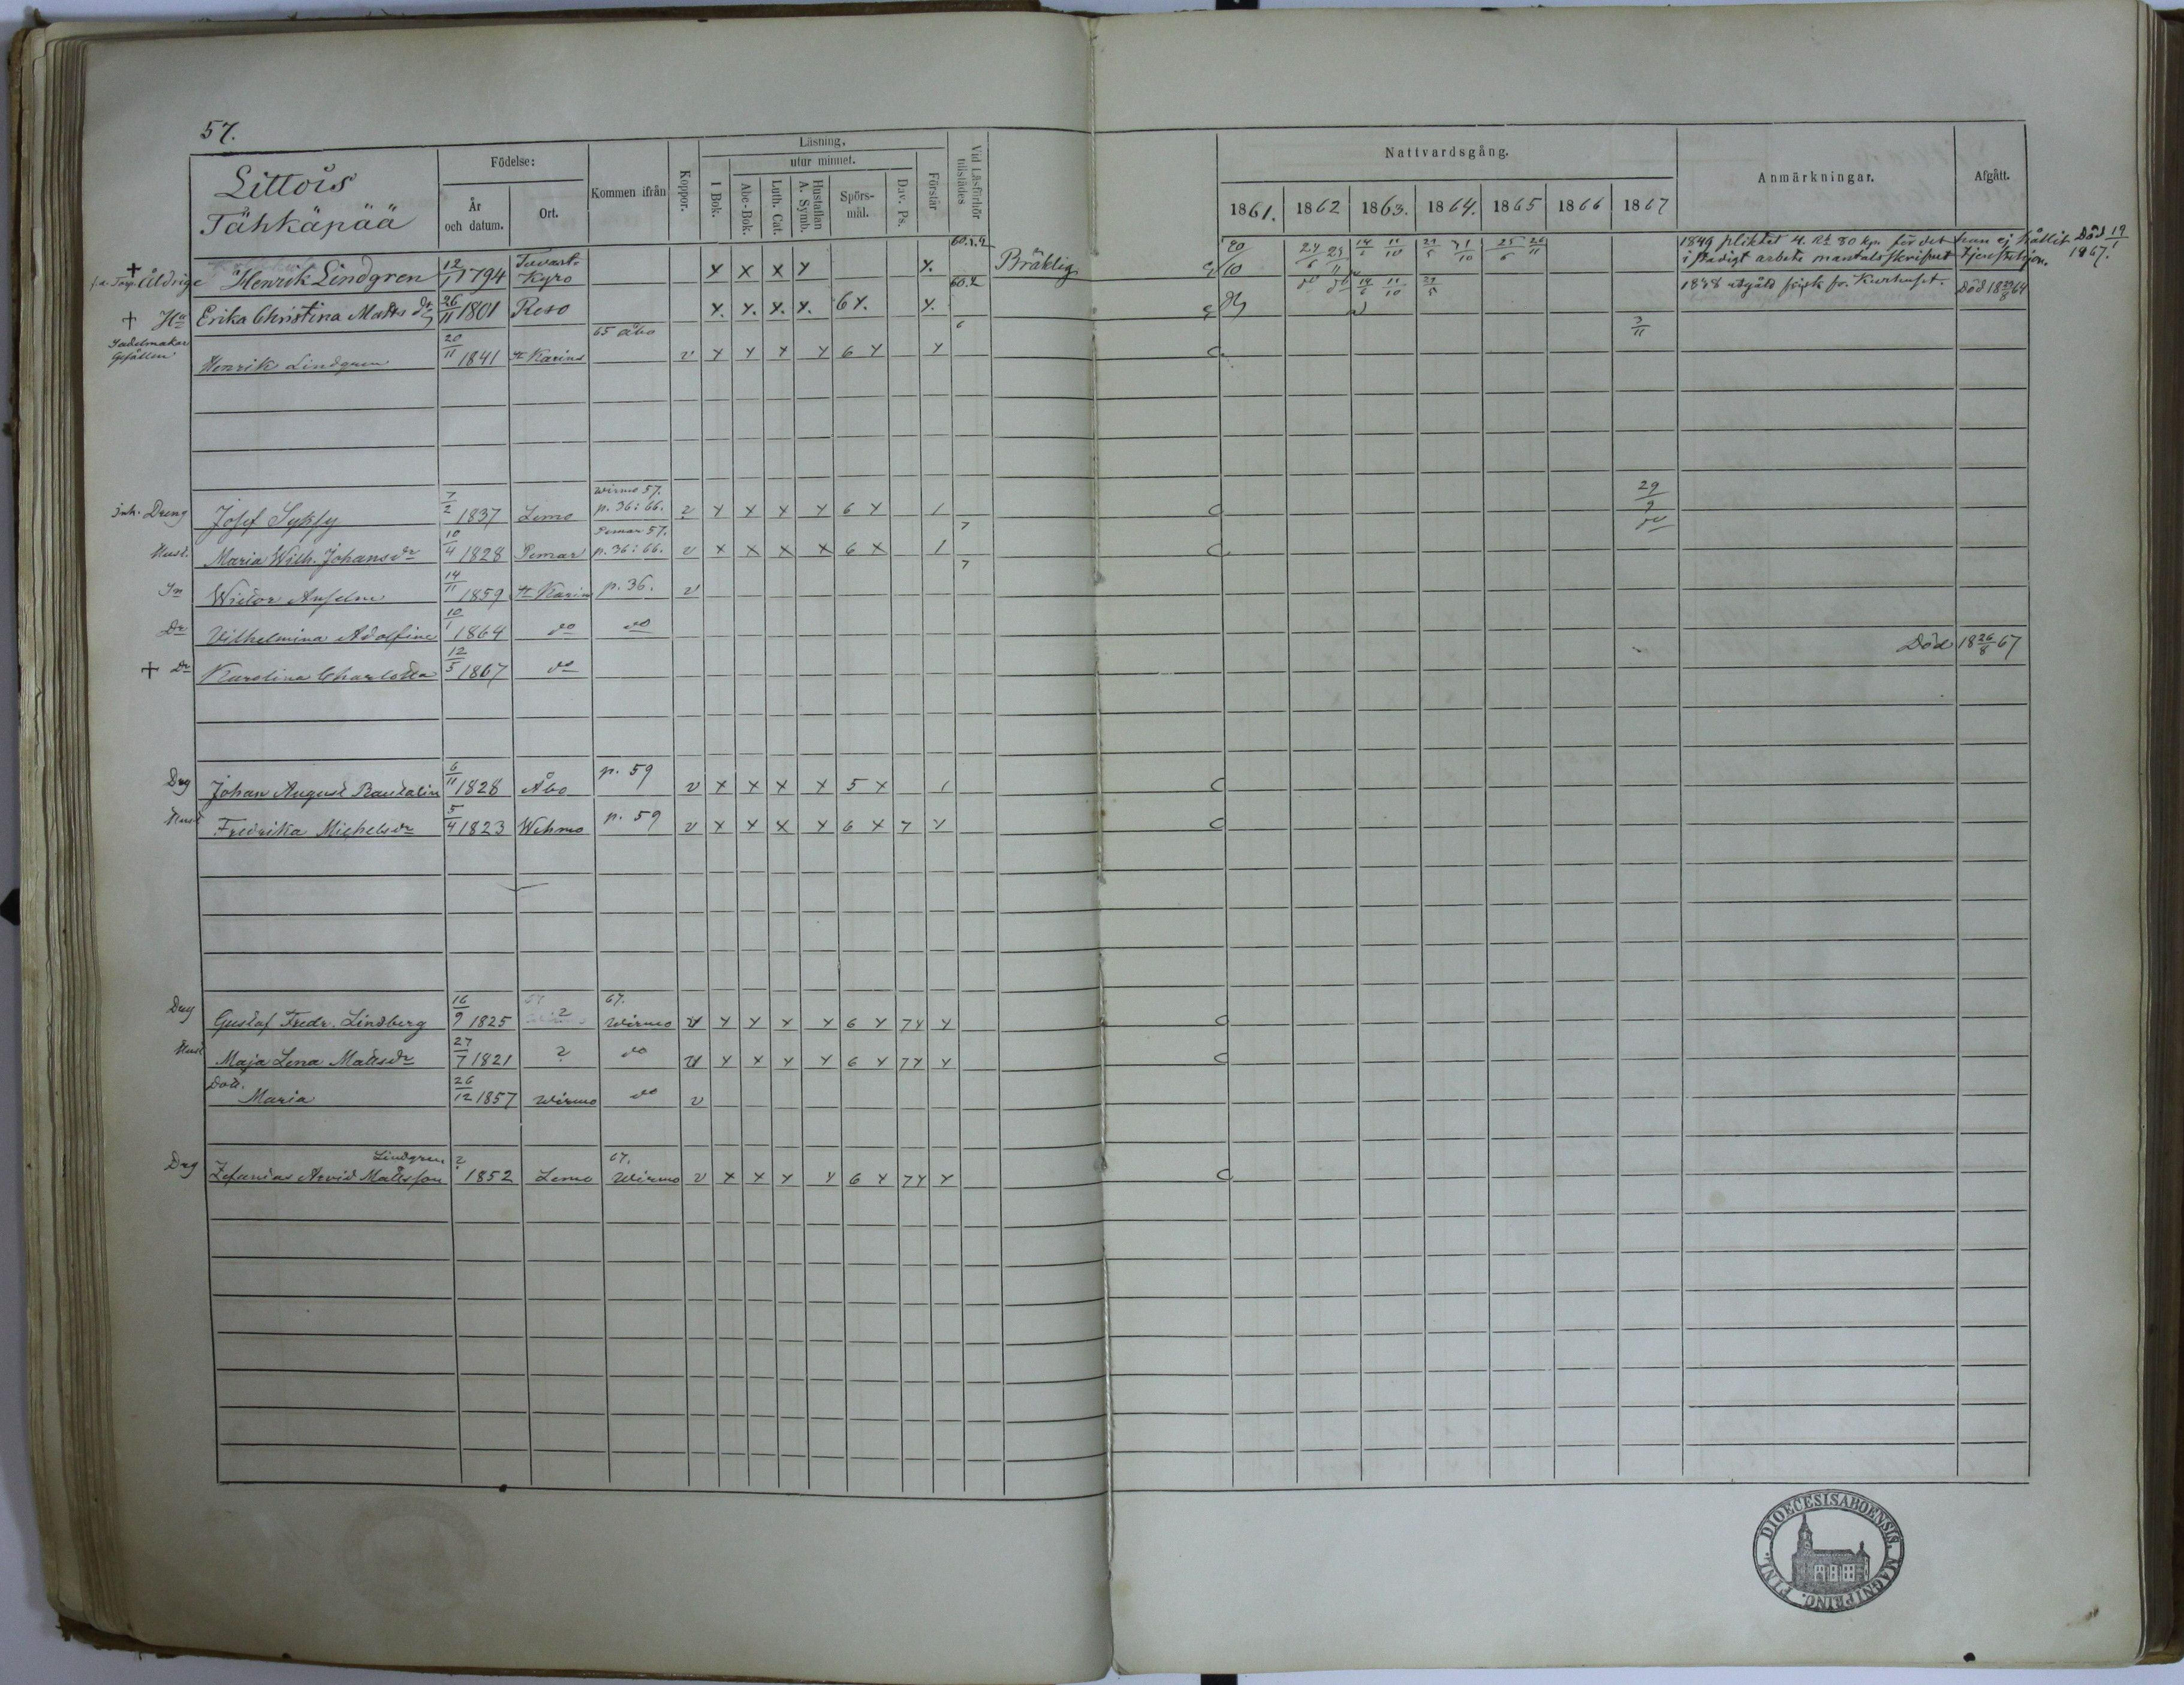 57.
Littois
Tähkäpää
Födelse:
År och datum.
Ort.
Kommen ifrån
Koppor.
Läsning,
utur minnet.
I Bok.
Abc-Bok.
Luth. Cat.
Hustaflan A. Symb.
Spörs-mål.
Dav. Ps.
Förstår
Vid Läsförhör tillstädes
Nattvardsgång.
1861. 1862 1863. 1864. 1865 1866 1867
Anmärkningar.
Afgått.
† Åldrige Henrik Lindgren 12/1 1794 Tavast-Kyro x x x x x. 60. Bräklig 20/10 24/6 14/6 11/10 29/5 31/10 25/6 26/11 1849 pliktat 4. Rb 80 kp. för det han ej hållit Död 19/1 1867.
i stadigt arbete mantalsskrifvet tjenstehjon.
† Hu Erika Christina Matts dr 26/11 1801 Reso x. x. x. x. 6 x. x. 60.2 14/6 11/10 29/5 1838 utgått frisk fr. Kurhuset. Död 18 29/8 64
Sadelmakar Gesällen Henrik Lindgren 20/11 1841 St Karins 65 Åbo v x x x x 6 x x 6 c 3/11
Inh. Dreng Josef Syksy 7/2 1837 Lemo Wirmo 57. p. 36: 66. v x x x x 6 x 1 7 c 29/9
Hust. Maria Wilh. Johansdr 10/4 1828 Pemar Pemar 57. p. 36: 66. v x x x x 6 x 1 7 c do
Sn Wictor Anselm 14/11 1859 St Karins p. 36. v
Dr Vilhelmina Adolfina 10/1 1864 do do
† Dr Karolina Charlotta 12/5 1867 do Död 18 26/8 67
Drg Johan August Rautalin 6/11 1828 Åbo p. 59 v x x x x 5 x 1 c
Hust Fredrika Michelsdr 5/4 1823 Wehmo p. 59 v x x x x 6 x 7 x c
Drg Gustaf Fredr. Lindberg 16/9 1825 ? 67. Wirmo v x x x x 6 x 7 x x c
Hust Maja Lena Mattsdr 27/7 1821 ? do v x x x x 6 x 7 x x c
Dott. Maria 26/12 1857 Wirmo do v
Lindgren
Drg Zefanias Arvid Mattsson ? 1852 Lemo 67. Wirmo v x x x x 6 x 7 x x c
FINL. DIOECESIS ABOENSIS. MAGNI PRINC.